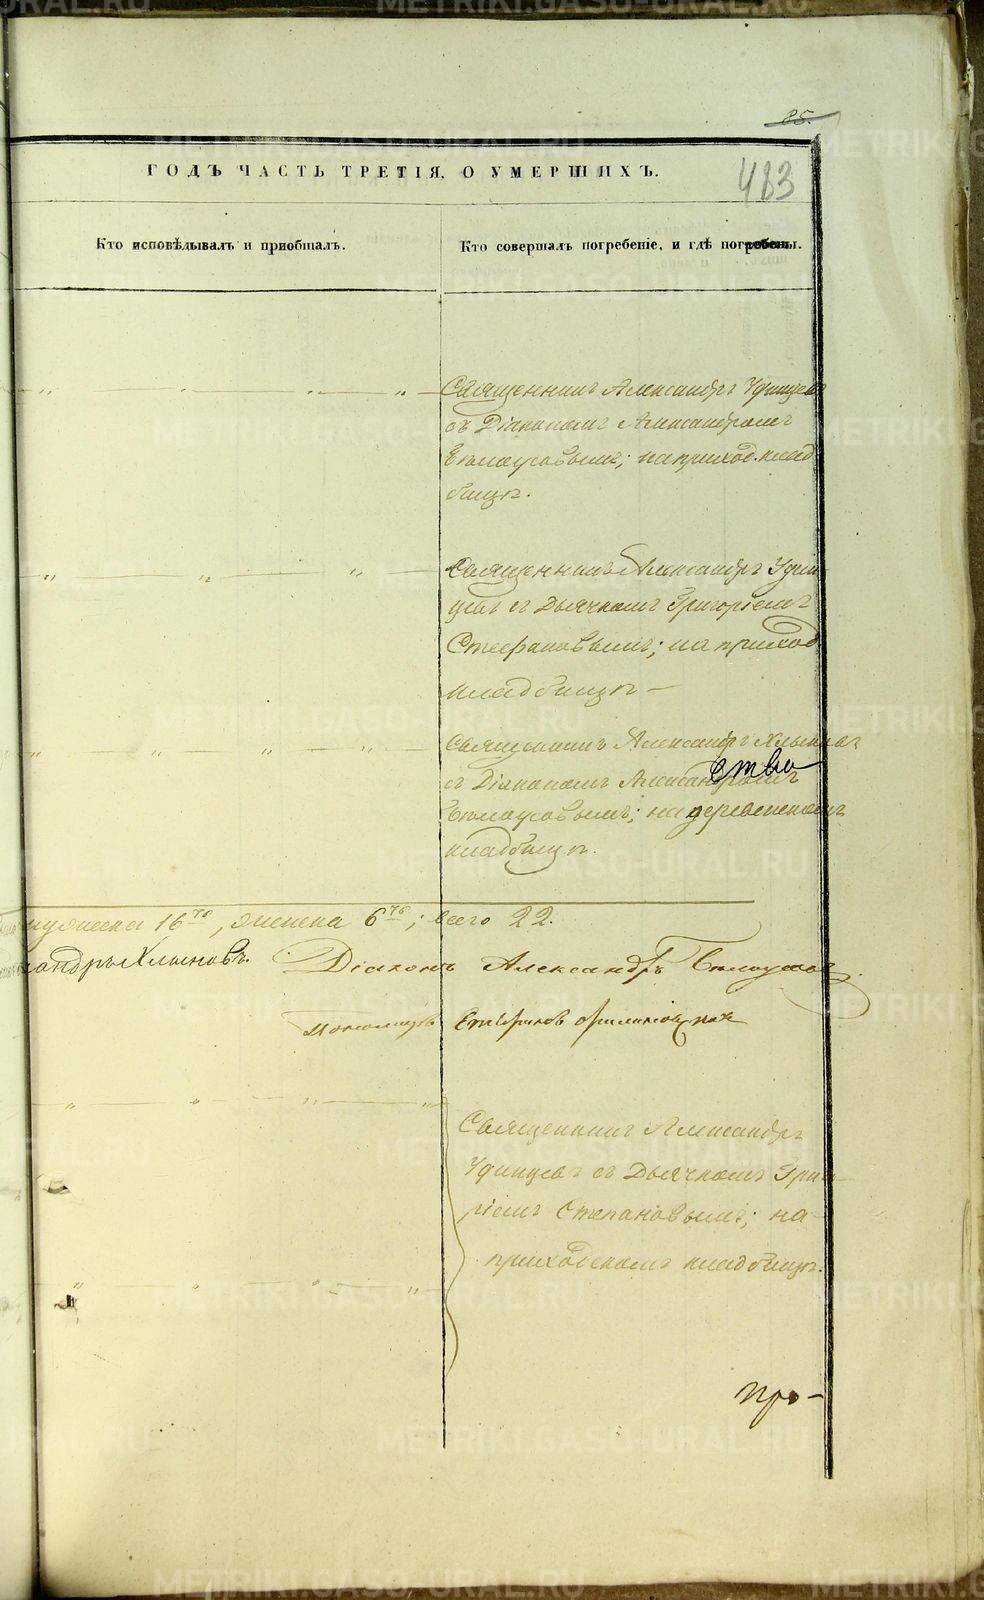 85.
ГОДЪ ЧАСТЬ ТРЕТІЯ, О УМЕРШИХЪ.
483
Кто исповѣдывалъ и пріобщалъ.
Кто совершалъ погребеніе, и гдѣ погребены.
Священникъ Александръ Удинцевъ
съ Діакономъ Александромъ
Бѣлоусовымъ; на приход. клад
бищѣ.
Священникъ Александръ Удин
цевъ съ Дьячкомъ Григоріемъ
Стефановымъ; на приход
кладбищѣ —
Священникъ Александръ Хлыновъ
съ Діакономъ Александромъ
ство
Бѣлоусовымъ; на деревенскомъ
кладбищѣ.
мужеска 16ть, женска 6ть; всего 22.
андръ Хлыновъ.
Діаконъ Александръ Бѣлоусовъ.
Пономарь
Священникъ Александръ
Удинцевъ съ Дьячкомъ Григо
ріемъ Степановымъ; на
приходскомъ кладбищѣ.
про-
METRIKI.GASO-URAL.RU